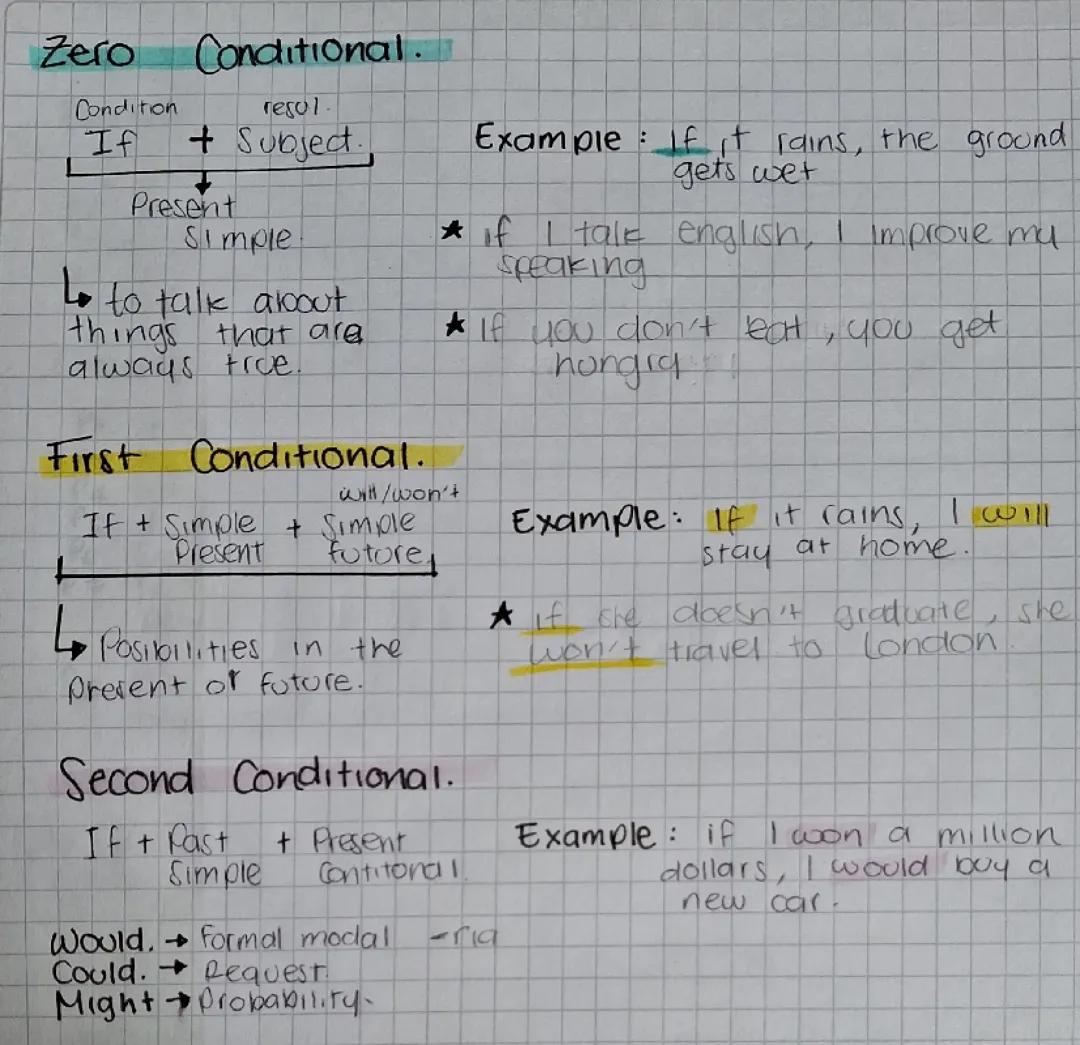 Zero Conditional.
Condition resul.
If + Subject.
Present
Simple.
↳ to talk about
things that are
always true.
Example: If it rains, the ground
gets wet
★ if I talk english, I improve my
speaking
★ If you don't eat, you get
hungry
First Conditional.
will/won't
If + Simple + Simple
Present future
↳ Posibilities in the
present or future.
Example: If it rains, I will
stay at home.
★ if she doesn't graduate, she
won't travel to London.
Second Conditional.
If + Past + Present
Simple Contitonal
Example: if I won a million
dollars, I would buy a
new car.
Would. → formal modal -ria
Could. → Request.
Might → Probability.